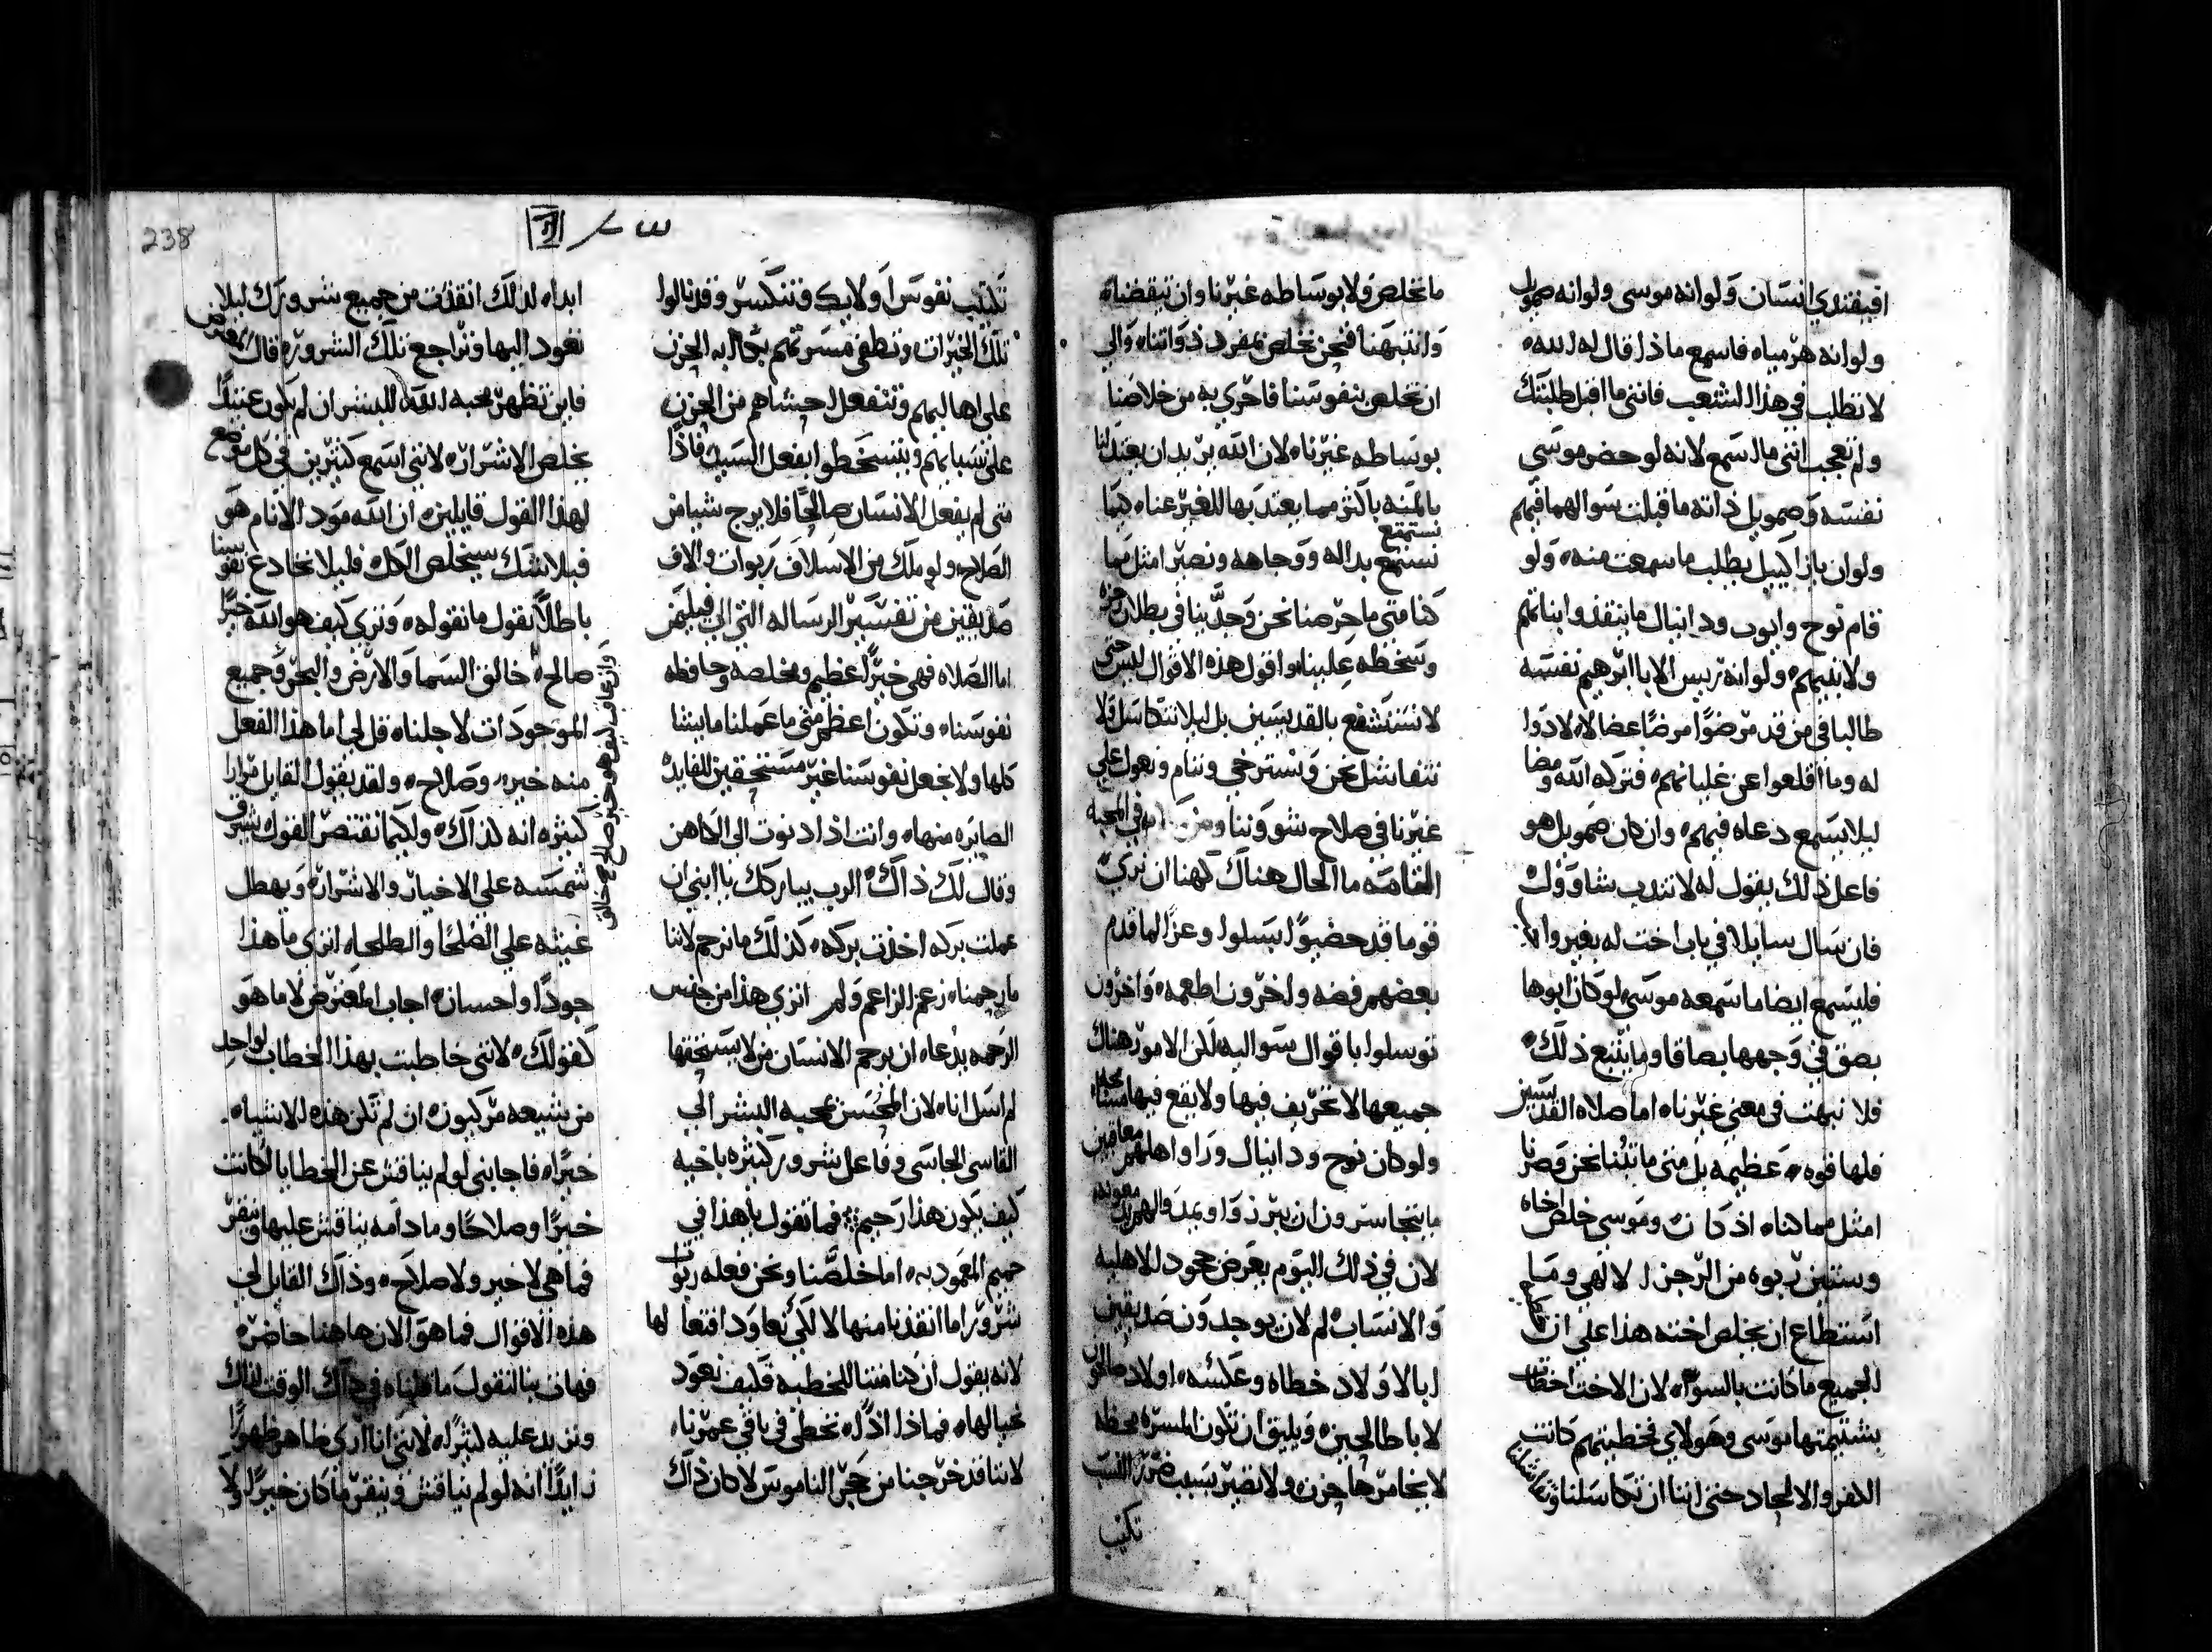 افيفتدي انسان ولوانه موسى ولوانه صمويل
ولوانه هرمياه فاسمع ماذا قال له الله ه
لا تطلب في هذا الشعب فانني ما اقبل طلبتك
ولم تعجب انني ما اسمع لانه لو حضر موسى
نفسه وصمويل ذاته ما قبلت سوالهما فيهم
ولو ان بازاكييل يطلب ما سمعت منه ه ولو
قام نوح وايوب ودانيال ما ينقذوا بناتهم
ولا بنيهم ه ولوانه رييس الابا ابرهيم نفسه
طالبا في من قد مرضوا مرضا عضالا ه لا دوا
له وما اقلعوا عن غليانهم ه فتركه الله ومضا
ليلا يسمع دعاه فيهم ه وان كان صمويل هو
فاعل ذلك يقول له لا تندب شاوول ه
فان سال سايلا في باب اخت له بغير والا
فليسمع ايضا ما سمعه موسى لو كان ابوها
بصق في وجهها بصاقا وما يتبع ذلك ه
فلا نبهت في معني غيرنا ه اما صلاه القديسين
فلها قوه ه عظيمه بل متى ما تبنا نحن وصرنا
امثل مما كنا ه اذ كان وموسى خلص اخاه
وستين ربوه من الرجز الالهي وما
استطاع ان يخلص اخته هذا علي ان
الجميع ما كانت بالسوا ه لان الاخت اخطات
بشتيمتها موسى وهولاي فخطيتهم كانت
الكفر والالحاد حتى اننا ان تكاسلنا
ما نخلص ولا بوساطه غيرنا وان تيقضنا ه
وانتبهنا فنحن نخلص بمفرد ذواتنا ه والي
ان نخلص بنفوسنا فاحري به من خلاصنا
بوساطه غيرنا ه لان الله يريد ان يعتد لنا
بالمنه باكثر مما يعتد بها للغير عنا ه كيما
نستمتع
نستمتع بداله ووجاهه ونصير امثل مما
كنا متى ما حرصنا نحن وجدينا في بطلان رجزه
وسخطه علينا ه واقول هذه الاقوال ليس حتى
لا نستشفع بالقديسين بل ليلا نتكاسل ولا
نتفاشل نحن ونسترخي وننام ونعول على
غيرنا في صلاح شووننا في المحبه
الحال هناك كهنا ان نري
قوما قد حضيوا ليسلوا وعزا لما قدم
بعضهم فضه واخرون اطعمه ه واخرون
توسلوا باقوال سواليه لكن الامور هناك
جميعها لا تحريف فيها ولا يقع فيها
ولو كان نوح ودانيال وراوا اهلهم معاقبين
ما يتجاسرون ان يبرزوا ويمدوا لهم يد معونه
لان في ذلك اليوم يعرض جحود الاهليه
والانساب ه لم لان يوجدون صديقين
ابا لاولاد خطاه وعكسه ه اولاد صالحين
لابا طالحين ه ويليق ان تكون المسره محظه
لا يخامرها حزن ه ولا تصير بسبب ضرر النسب
تكتيب
تكتيب نفوس اوليك وتنكسر وقد نالوا
تلك الخيرات ه وتطفي مسرتهم بحاله الحزن
علي اهاليهم وتنفعل احشاهم من الحزن
علي نسبايهم ويتسخطوا بفعل السيد فاذا
متى لم يفعل الانسان صالحا فلا يرج شيا من
الصلاح ه ولو ملك من الاسلاف ربوات والاف
صديقين من تفسير الرساله التي الي فيلبي
اما الصلاه فهي خيرا عظيم ومخلصه وحافظه
نفوسنا ه وتكون اعظم متى ما عملنا مايشا
كلها ولا نجعل نفوسنا غير مستحقين للفايده
الصايره منها ه وانت اذا دنوت الي الكاهن
وقال لك ذاك ه الرب يباركك يا ابني ان
عملت بركه اخذت بركه ه كذلك ما نرحم لاننا
ما رحمنا ه زعم الزاعم ولم اتري هذا من جنس
الرحمه بدعاه ان يرحم الانسان من لا يستحقها
لم اسل انا ه لان المحسن محبه البشر الي
القاسي الجاسي وفاعل شرور كثيره باخيه
كيف يكون هذا رحيم فما تقول يا هذا في
حميم المعموديه ه اما خلصنا ونحن فعله ربوات
شرور اما انقذنا منها لا لكي نعاود افتعالها
لانه يقول ان كنا متنا للخطيه فكيف نعود
نحيا لها ه فماذا اذا ه نخطي في باقي عمرنا ه
لاننا قد خرجنا من حجر الناموس لا كان ذاك
238
ابدا ه لذلك انقذت من جميع شرورك ليلا
تعود اليها وتراجع تلك الشرور ه قال المعترض
فاين تظهر محبه الله للبشر ان لم يكون عتيدا
يخلص الاشرار ه لانني اسمع كثيرين في كل موضع
لهذا القول قايلين ه ان الله مود الانام هو
فبلا شك سيخلص الكل ه فليلا نخادع نفوسنا
باطلا نقول ما نقوله ه ونري كيف هو الله خيرا
صالح ه خالق السما والارض والبحر وجميع
وان عاقب كيف هو خير صالح خالق
الموجودات لاجلنا ه قل لي اما هذا الفعل
منه خيره وصلاح ه ولقد يقول القايل مرارا
كثيره انه كذاك ه ولكيما نقتصر القول يشرق
شمسه علي الاخيار والاشرار ه ويهطل
غيثه علي الصلحا والطلحا ه اتري ما هذا
جودا واحسان ه اجاب المعترض لا ما هو
كقولك ه لانني خاطبت بهذا الخطاب لواحد
من شيعه مركيون ه ان لم تكن هذه الاشيا ه
خيرا ه فاجابني لو لم يناقش عن الخطايا لكانت
خيرا وصلاحا ه وما دامه يناقش عليها وينقر
فما هي لا خير ولا صلاح ه وذاك القايل لي
هذه الاقوال فما هو الان هاهنا حاضره
فهات بنا لنقول ما قلناه في ذاك الوقت لذاك
ونزيد عليه كثيرا ه لانني انا اري ظاهر ظهورا
زايدا انه لو لم يناقش وينقر ما كان خيرا ولا